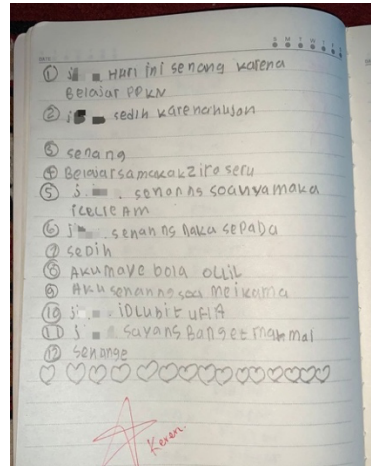 S M T W T F S
① Hari ini senang karena
Belajar PPKN
② sedih karena hujan
③ senang
④ Belajar sama kak zira seru
⑤ j. senanns soanya maka
icelieAm
⑥ j senanns naka sepada
⑦ sedih
⑧ AKU maye bola OLLIL
⑨ AKU senanns soa meikama
⑩ ji iDLUbit UFIA
⑪ S sayans Banget mak mal
⑫ senange
Keren